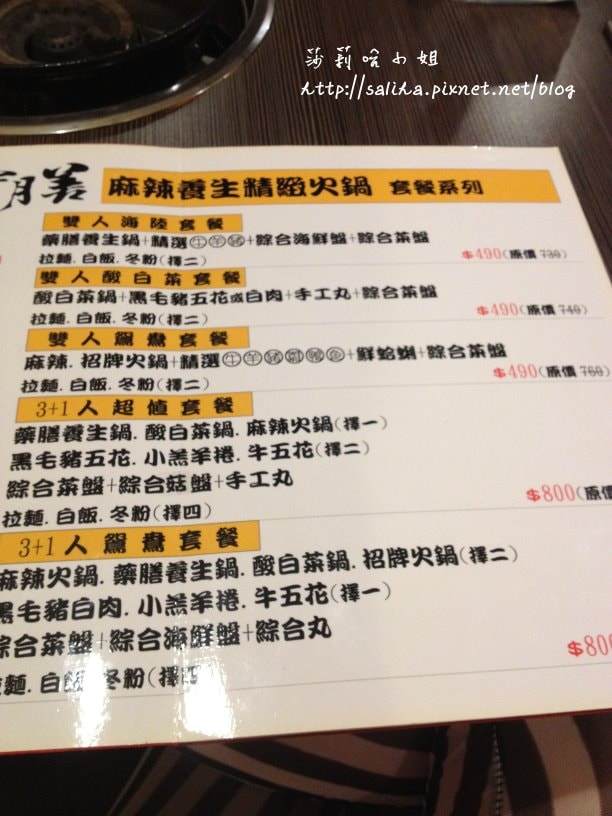 莎莉哈小姐
http://saliha.pixnet.net/blog
麻辣養生精緻火鍋 套餐系列
雙人海陸套餐
藥膳養生鍋+精選牛羊豬+綜合海鮮盤+綜合菜盤
拉麵.白飯.冬粉(擇二) $490(原價730)
雙人酸白菜套餐
酸白菜鍋+黑毛豬五花或白肉+手工丸+綜合菜盤
拉麵.白飯.冬粉(擇二) $490(原價740)
雙人鴛鴦套餐
麻辣.招牌火鍋+精選牛羊豬雞鴨魚+鮮蛤蜊+綜合菜盤
拉麵.白飯.冬粉(擇二) $490(原價760)
3+1人超值套餐
藥膳養生鍋.酸白菜鍋.麻辣火鍋(擇一)
黑毛豬五花.小羔羊捲.牛五花(擇二)
綜合菜盤+綜合菇盤+手工丸
拉麵.白飯.冬粉(擇四) $800(原價
3+1人鴛鴦套餐
麻辣火鍋.藥膳養生鍋.酸白菜鍋.招牌火鍋(擇二)
黑毛豬白肉.小羔羊捲.牛五花(擇一)
綜合菜盤+綜合海鮮盤+綜合丸
拉麵.白飯.冬粉(擇四) $800